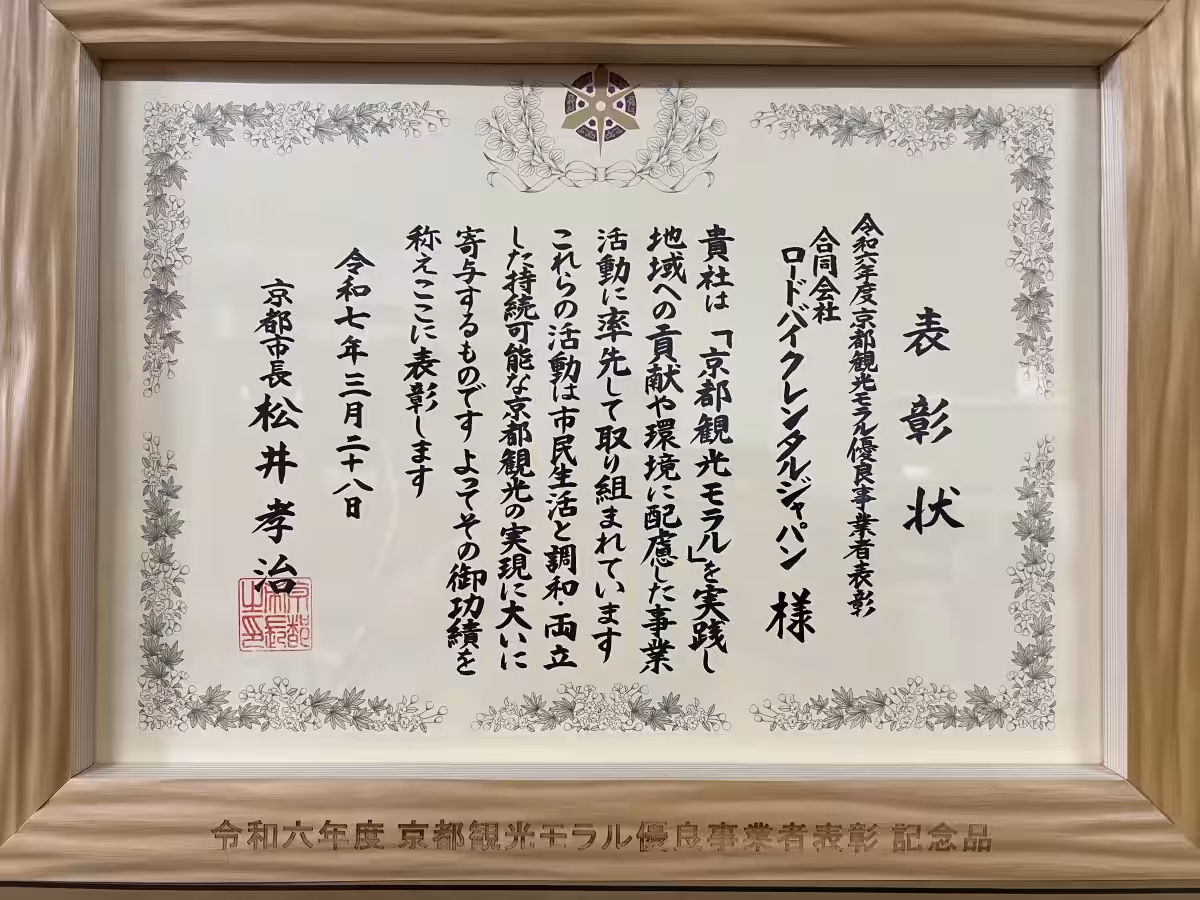 表彰状
令和六年度京都観光モラル優良事業者表彰
合同会社
ロードバイクレンタルジャパン 様
貴社は「京都観光モラル」を実践し
地域への貢献や環境に配慮した事業
活動に率先して取り組まれています
これらの活動は市民生活と調和・両立
した持続可能な京都観光の実現に大いに
寄与するものです よってその御功績を
称えここに表彰します
令和七年三月二十八日
京都市長 松井孝治
京都
市長
之印
令和六年度 京都観光モラル優良事業者表彰 記念品